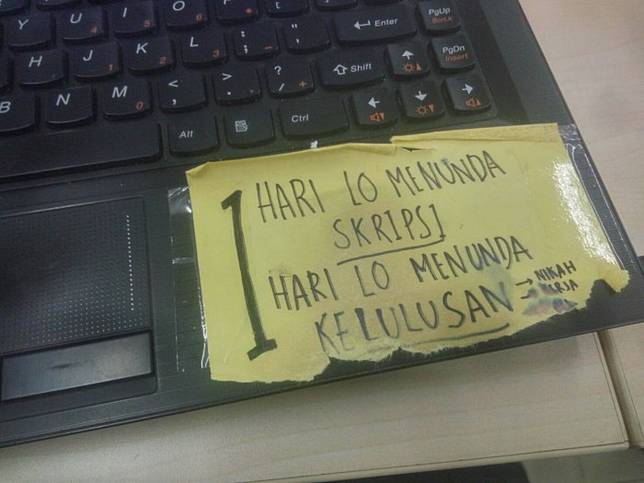 Y U I O P { [ } ] Enter PgUp
H J K L : ; " ' PgDn
B N M < , > . ? / Shift
Alt Ctrl
1 HARI LO MENUNDA
SKRIPSI
HARI LO MENUNDA
KELULUSAN → NIKAH